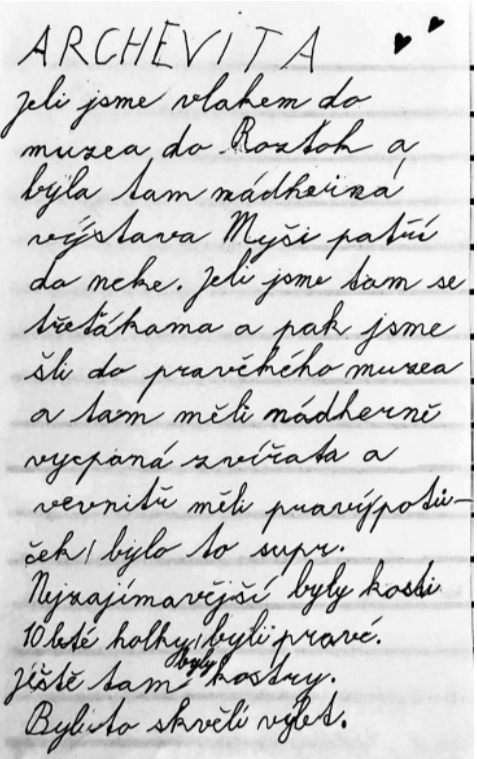 ARCHEVITA
Jeli jsme vlakem do
muzea do Roztok a
byla tam nádherná
výstava Myši patří
do neke. Jeli jsme tam se
třeťákama a pak jsme
šli do pravěkého muzea
a tam měli nádherně
vycpaná zvířata a
vevnitř měli pravýpotů-
ček/bylo to supr.
Nejzajímavější byly kosti
10leté holky/byli pravé.
Jěště tam byly kostry.
Byli to skvěli výlet.